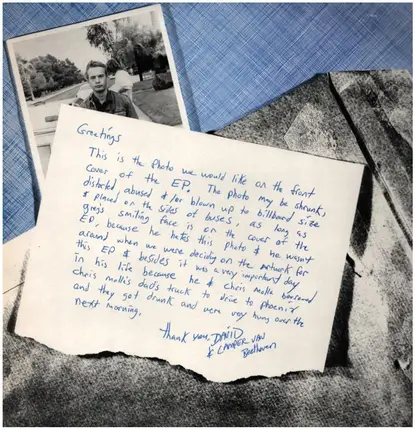 Greetings
This is the photo we would like on the front
cover of the EP. The photo may be shrunk,
distorted, abused &/or blown up to billboard size
& placed on the sides of buses, as long as
greg's smiling face is on the cover of the
EP, because he hates this photo & he wasn't
around when we were deciding on the artwork for
this EP & besides it was a very important day
in his life because he & chris molla borrowed
chris molla's dad's truck to drive to phoenix
and they got drunk and were very hung over the
next morning.
Thank you, DAVID
& CAMPER VAN
Beethoven